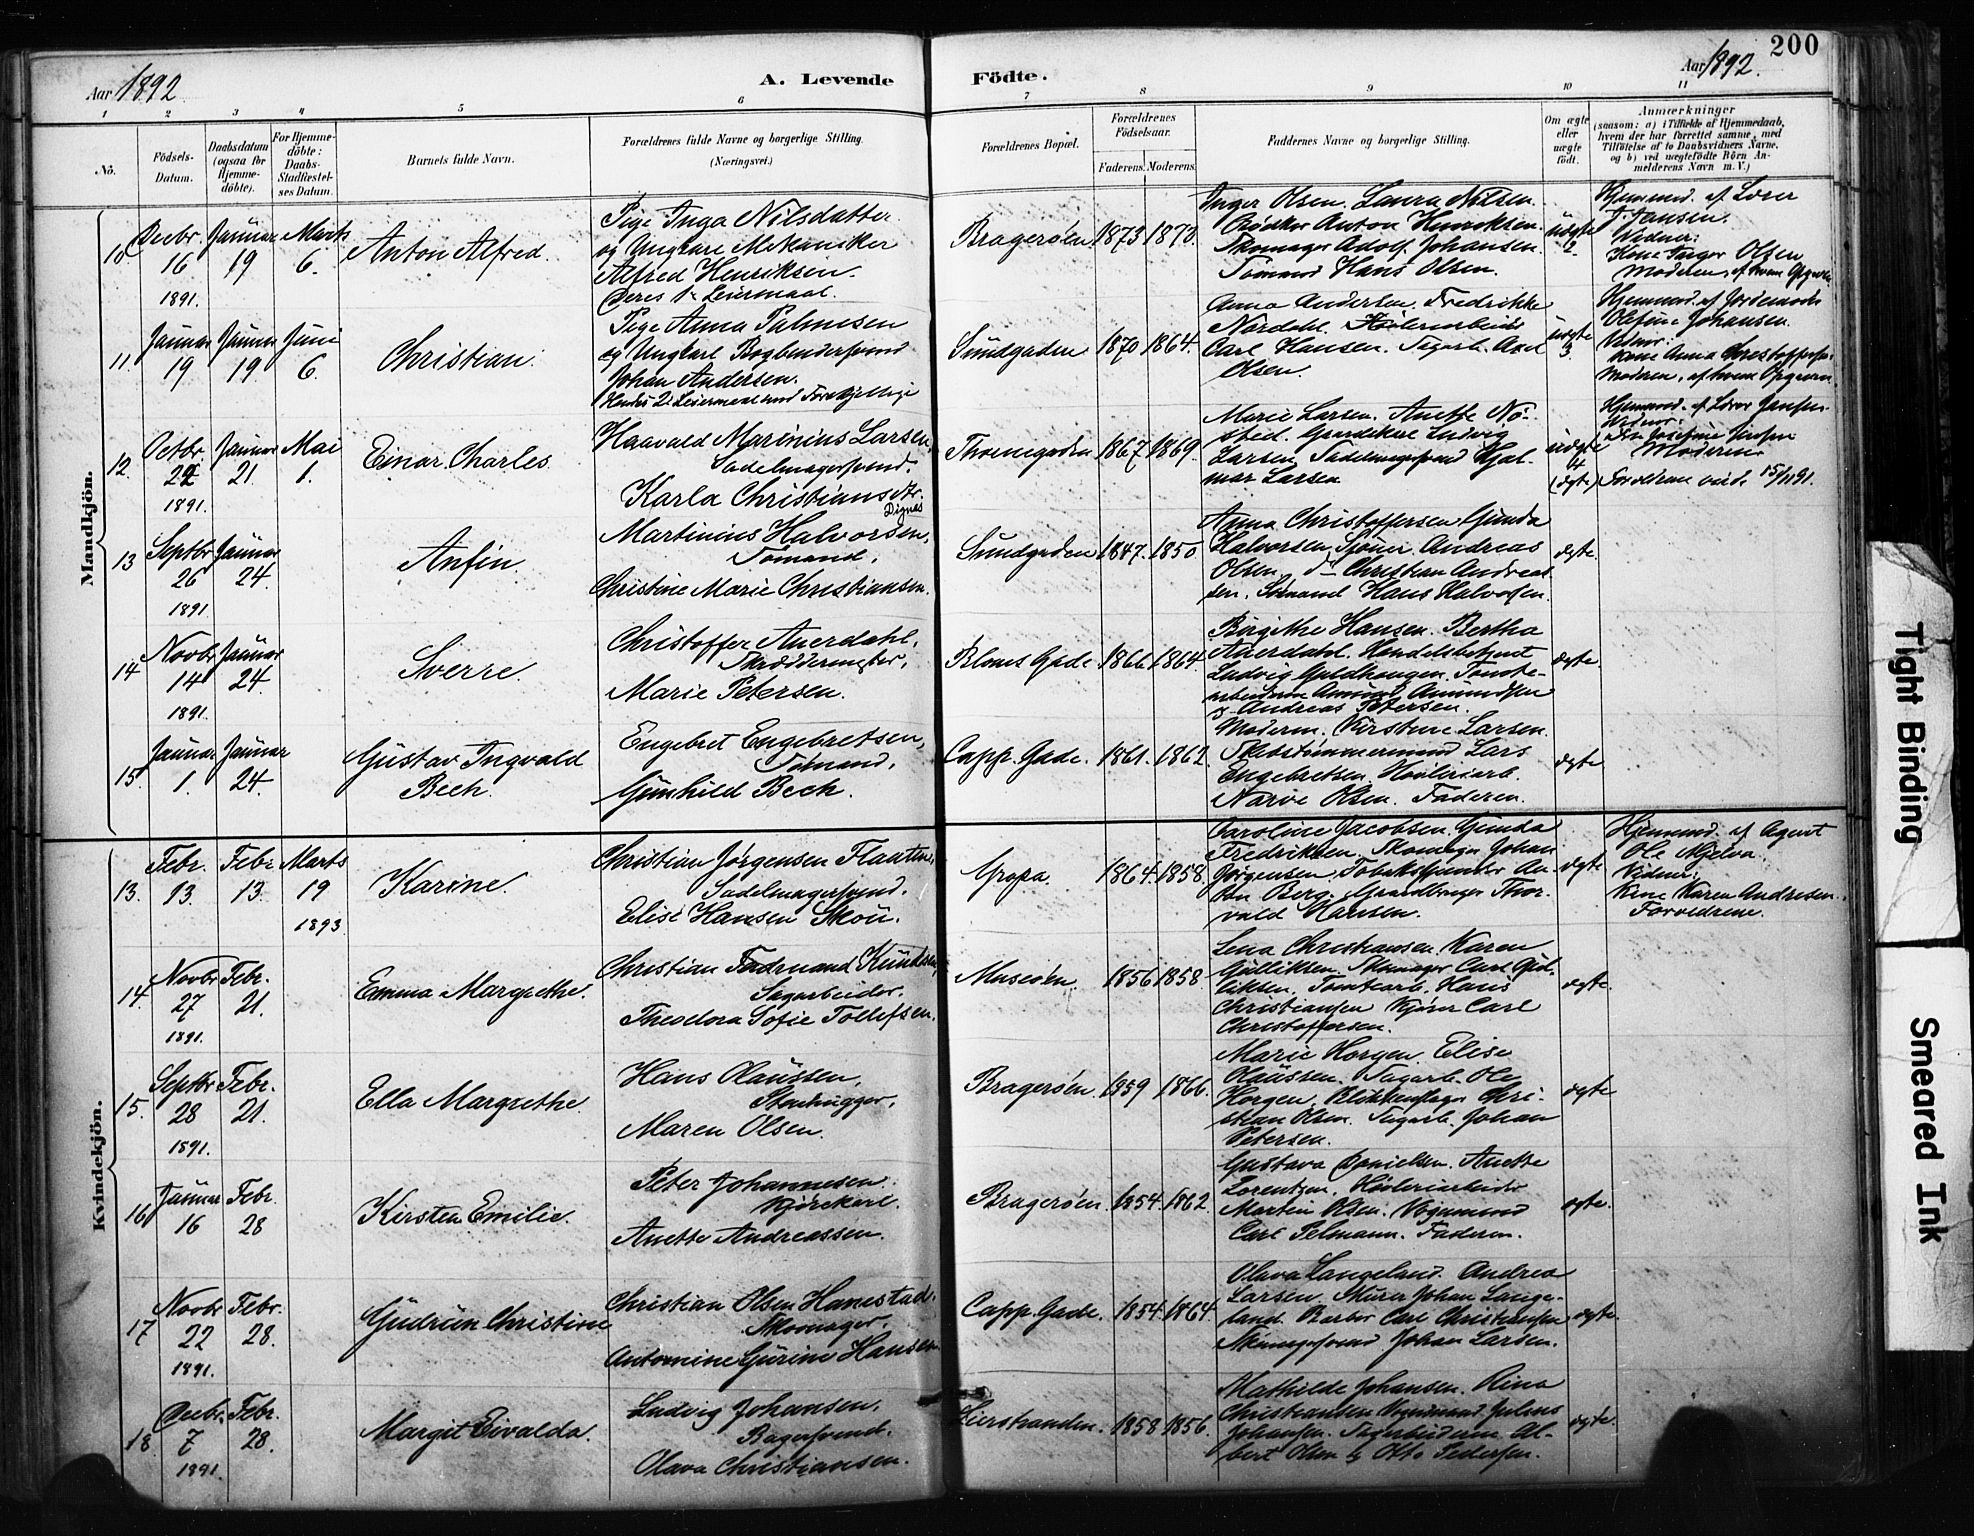 Aar 1892
A. Levende Födte.
Aar 1892.
200
1 2 3 4 5 6 7 8 9 10 11
No.
Födsels-Datum.
Daabsdatum (ogsaa for Hjemmedöbte).
For Hjemmedöbte: Daabs-Stadfæstelses Datum.
Barnets fulde Navn.
Forældrenes fulde Navne og borgerlige Stilling.
(Næringsvei.)
Forældrenes Bopæl.
Forældrenes Födselsaar.
Faderens. Moderens.
Faddernes Navne og borgerlige Stilling.
Om ægte eller uægte födt.
Anmærkninger
(saasom: a) i Tilfælde af Hjemmedaab, hvem der har forrettet samme, med Tilföielse af to Daabsvidners Navne, og b) ved uægtefödte Börn Anmelderens Navn m. V.)
Mandkjön.
10 Decbr. 16 1891. Januar 19 Marts 6. Anton Alfred.
Pige Inga Nilsdatter
og Ungkarl Mekaniker
Alfred Henriksen.
Deres 1ste Leiermaal.
Bragerøen 1873 1870.
Inger Olsen. Laura Nilsen.
Anton Henriksen.
Skomager Adolf Johansen
Tømand Hans Olsen.
uægte 2.
Hjemmed. af
Jansen.
Vidner:
Kone Inger Olsen
Moderen, af hvem Opgavene
11. Januar 19 Januar 19. Juni 6. Christian.
Pige Anna Palmesen
og Ungkarl Bogbindersvend
Johan Andersen.
Hendes 2det Leiermaal med Forskjellige
Sundgaden 1870 1864.
Anna Andersen. Fredrikke
Nordahl. Høvleriarbeider
Carl Hansen. Sagarb. Axel
Olsen.
uægte 3
Hjemmed. af Jordemoder
Olefine Johansen.
Vidner:
Kone Anna Christoffersen.
Moderen, af hvem Opgaven.
12. Octbr. 22 1891. Januar 21. Mai 1. Einar Charles
Haavald Marinius Larsen,
Sadelmagersvend.
Karla Christiansdtr.
Dignes
Thornegaden 1867 1869.
Marie Larsen. Anette Nø-
sted. Ludvig
Larsen. Sadelmagersvend Hjal-
mar Larsen
uægte 4 (ægte)
Hjemmed. af Jansen
Vidner:
Moderen
Forældrene viede 15/11 91.
13 Septbr 26 1891 Januar 24. Anfin.
Martinius Halvorsen,
Tømand.
Christine Marie Christiansen.
Sundgaden 1847. 1850.
Anna Christoffersen. Gunda
Halvorsen. Andreas
Olsen. do Christian Andreas-
sen. Sømand Hans Halvorsen.
ægte.
14 Novbr 14 1891. Januar 24. Sverre.
Christoffer Auerdahl,
Skræddermester,
Marie Petersen.
Bloms Gade 1866 1864
Birgithe Hansen. Bertha
Auerdahl. Handelsbetjent
Ludvig Guldhaugen. Tomte-
arbeiderne Amund Amundsen
& Andreas Petersen.
ægte.
15. Januar 1. Januar 24. Gustav Ingvald
Bech.
Engebret Engebretsen,
Tømand,
Gunhild Bech.
Capp. Gade. 1861. 1862
Moderen. Kirstine Larsen.
Skibstømmermand Lars
Engebretsen. Høvleriarb.
Narve Olsen. Faderen.
ægte
Kvindekjön.
13. Febr. 13. Febr. 13. Marts 19 1893. Karine.
Christian Jørgensen Flauten,
Sadelmagersvend.
Elise Hansen Skou.
Gropa. 1864. 1858.
Caroline Jacobsen. Gunda
Fredriksen. Skomager Johan
Jørgensen. Tobakspinder An-
ton Berg. Thor-
vald Hansen.
ægte
Hjemmed. af Agent
Ole Mjelva.
Vidner:
Kone Karen Andresen.
Forældrene.
14. Novbr 27 1891. Febr. 21. Emma Margrethe.
Christian Ferdinand Knudsen,
Sagarbeider,
Theodora Sofie Tollefsen.
Museøen. 1856 1858
Lena Christiansen. Karen
Gulliksen. Skomager Carl Gul-
liksen. Tomtearb. Hans
Christiansen Kjører Carl
Christoffersen.
ægte.
15. Septbr 28 1891. Febr. 21. Ella Margrethe.
Hans Olaussen,
Stenhugger,
Maren Olsen.
Bragerøen. 1859 1866.
Marie Horgen. Elise
Olaussen. Sagarb. Ole
Horgen. Blikkenslager Chri-
stian Olsen. Sagarb. Johan
Petersen.
ægte
16 Januar 16 Febr. 28 Kirsten Emilie.
Peter Johannesen.
Kjørekarl.
Anette Andreassen.
Bragerøen 1854. 1862.
Gustava Danielsen. Anette
Lorentzen. Høvleriarbeider
Martin Olsen. Vognmand
Carl Selmann. Faderen.
ægte.
17 Novbr 22 1891. Febr. 28. Gudrun Christine
Christian Olsen Hanestad.
Skomager,
Antonine Gurine Hansen
Capp. Gade. 1854. 1864.
Olava Langeland. Andrea
Larsen. Murer Johan Lange-
land. Barber Carl Christensen
Skomagersvend Johan Larsen.
ægte.
18 Decbr. 7 1891. Febr. 28. Margit Eivalda.
Ludvig Johansen,
Bagersvend.
Olava Christiansen.
Lierstranden. 1858 1856.
Mathilde Johansen. Rina
Christiansen. Vognmand Julius
Johansen. Tagarbeiderne Al-
bert Olsen & Otto Pedersen.
ægte.
Tight Binding
Smeared Ink